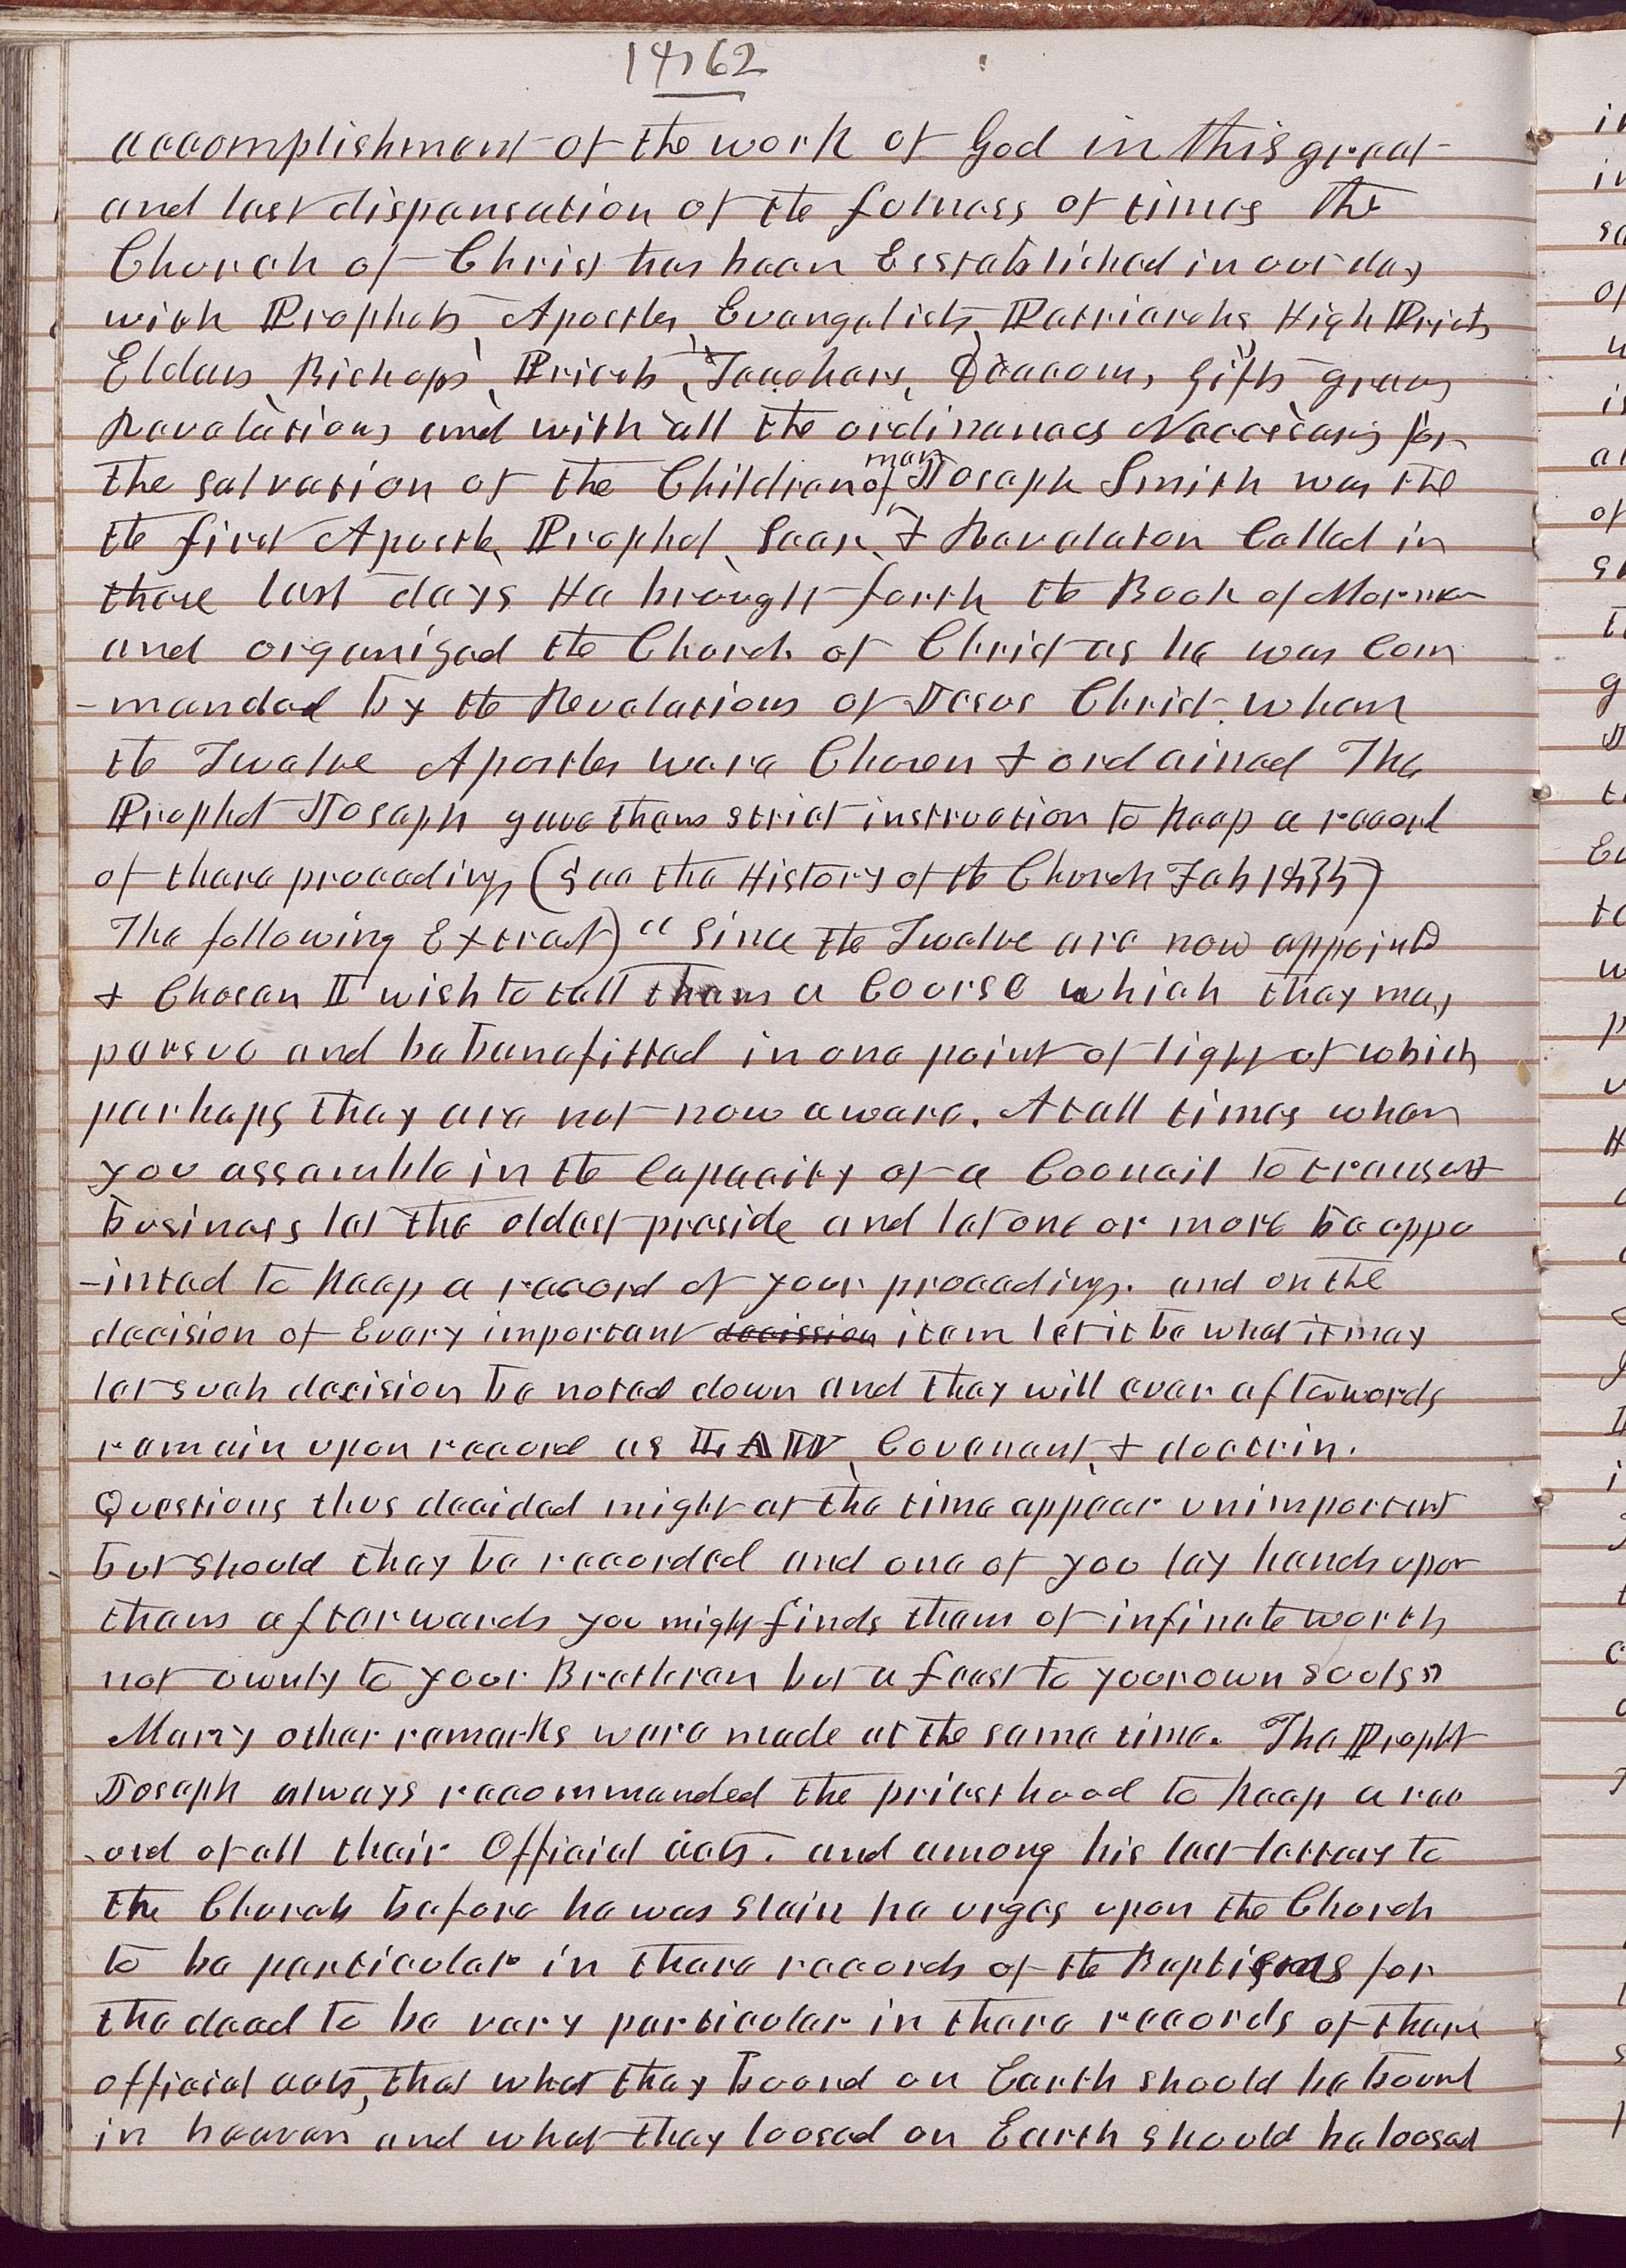 1862
accomplishment of the work of God in this great
and last dispensation of the fulness of times the
Church of Christ has been Esstablished in our day
with Prophets Apostles, Evangelists, Patriarchs, High Priests
Elders Bishops, Priests, Teachers, Deacons, gifts graces
Revelations, and with all the ordinances Neccessary for
man
the salvation of the Children of Joseph Smith was the
the first Apostle, Prophet, Seer, & Revelator Called in
these last days He brought forth the Book of Mormon
and organized the Church of Christ as he was Com
-manded by the Revelations of Jesus Christ. when
the Twelve Apostles were Chosen & ordained The
Prophet Joseph gave them strict instruction to keep a record
of there proceedings (See the History of the Church Feb 1835)
The following Extract) "Since the Twelve are now appointed
& Chosen I wish to tell them a Course which they may
persue and be benefitted in one point of light of which
perhaps they are not now aware. At all times when
you assemble in the Capacity of a Council to transact
business let the oldest preside and let one or more be appo
-inted to keep a record of your proceedings. and on the
decision of Every important decission item let it be what it may
let such decision be noted down and they will ever afterwords
remain upon record as LAW, Covenant, & doctrin.
Questions thus decided might at the time appear unimportant
but should they be recorded and one of you lay hands upon
them afterwards you might finds them of infinate worth
not ownly to your Brethren but a feast to your own souls"
Many other remarks were made at the same time. The Prophet
Joseph always recommended the priesthood to keep a rec
-ord of all their Official acts. and among his last letters to
the Church before he was slain he urges upon the Church
to be particular in there records of the Baptisms for
the dead to be very particular in there records of there
official acts, that what they bound on Earth should be bound
in heaven and what they loosed on Earth should be loosed